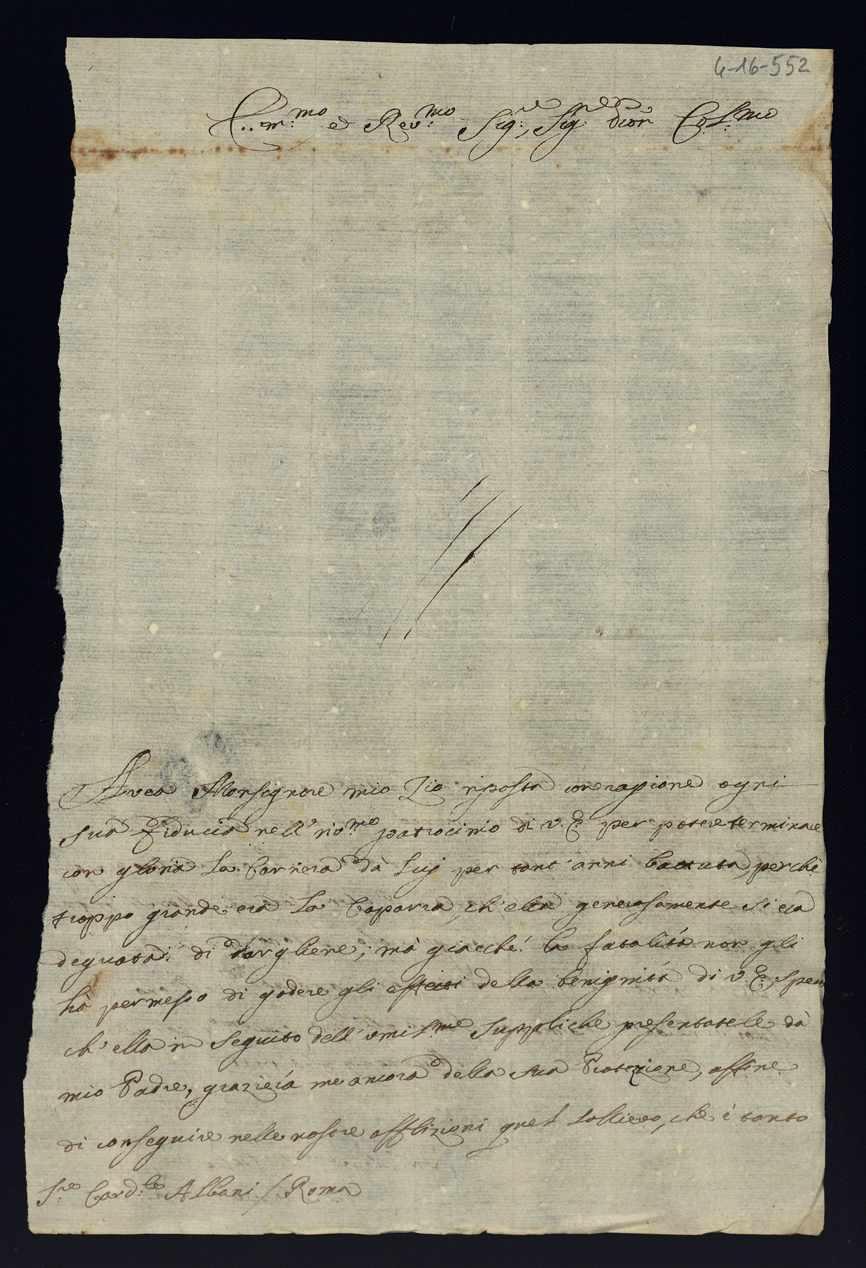 4-16-552
Em:mo e Rev:mo Sig:re, Sig:re Pron Col:mo
Avea Monsignore mio Zio riposta con ragione ogni
sua Fiducia nell' patrocinio di V. E. per potere terminare
con gloria la Carriera dà Luj per tant' anni battuta, perchè
troppo grande era la Caparra, ch' ella generosamente si era
degnata di dargliene; mà giacchè la fatalità non gli
hà permesso di godere gli effetti della benignità di V. E., spero
ch' ella in seguito dell' umil:me suppliche presentatele dà
mio Padre, grazierà me ancora della sua Protezione, affine
di conseguire nelle nostre afflizioni quel sollievo, che è tanto
S:re Card:le Albani / Roma